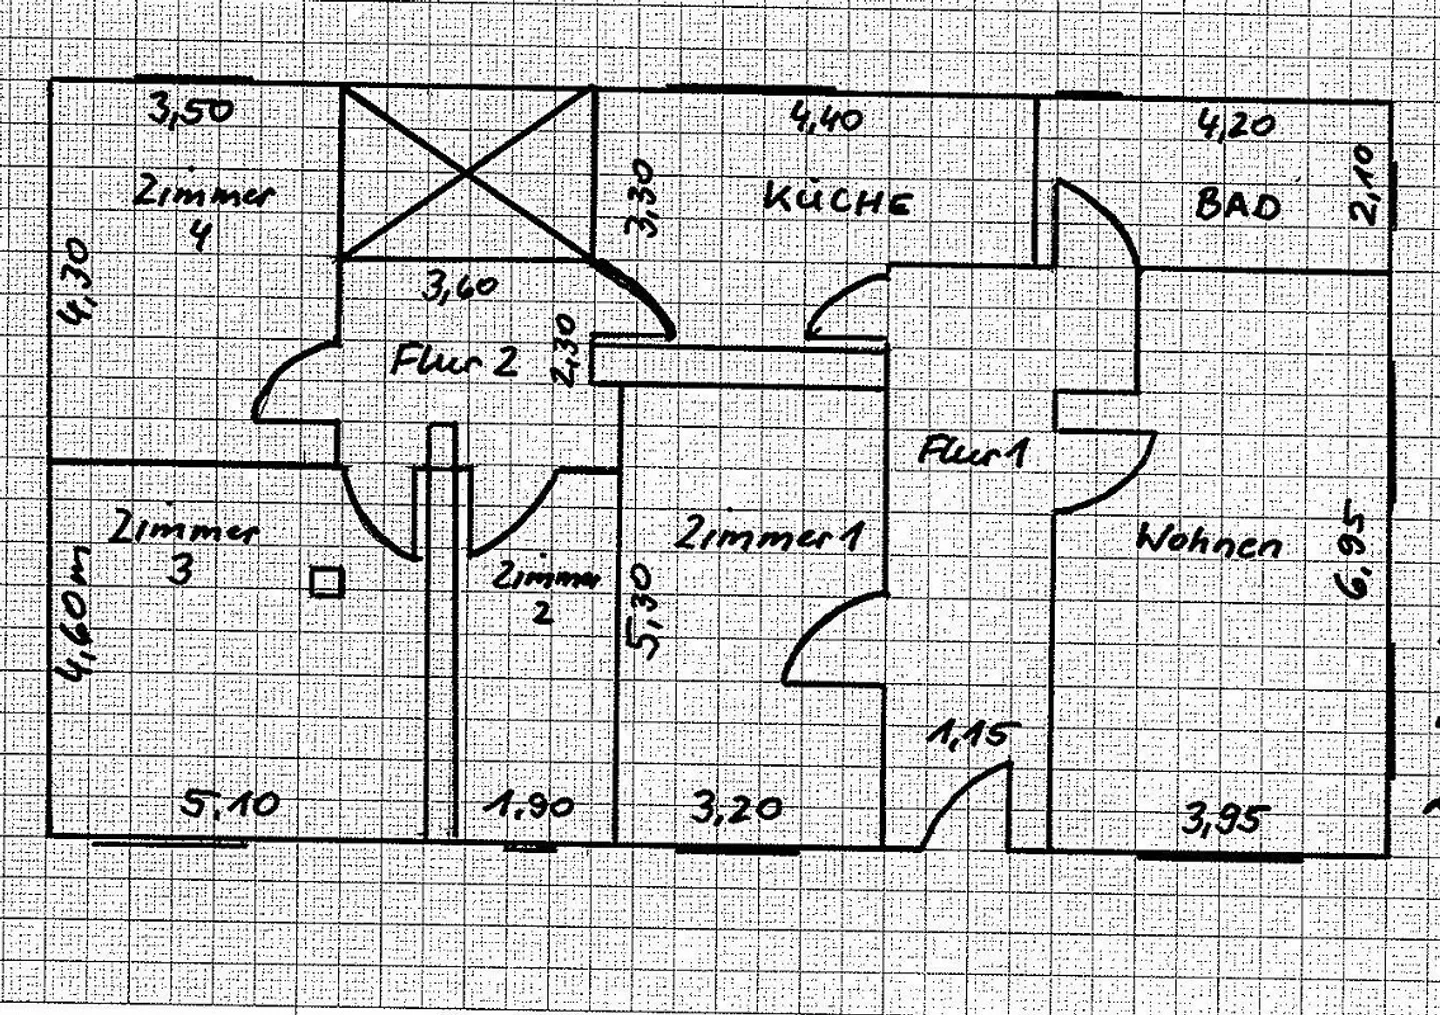 3,50
4,40
4,20
Zimmer
4
3,30
KÜCHE
BAD
2,10
4,30
3,60
Flur 2
2,30
Flur 1
Zimmer
3
Zimmer 1
Wohnen
Zimmer
2
4,60 m
5,30
6,95
1,15
5,10
1,90
3,20
3,95